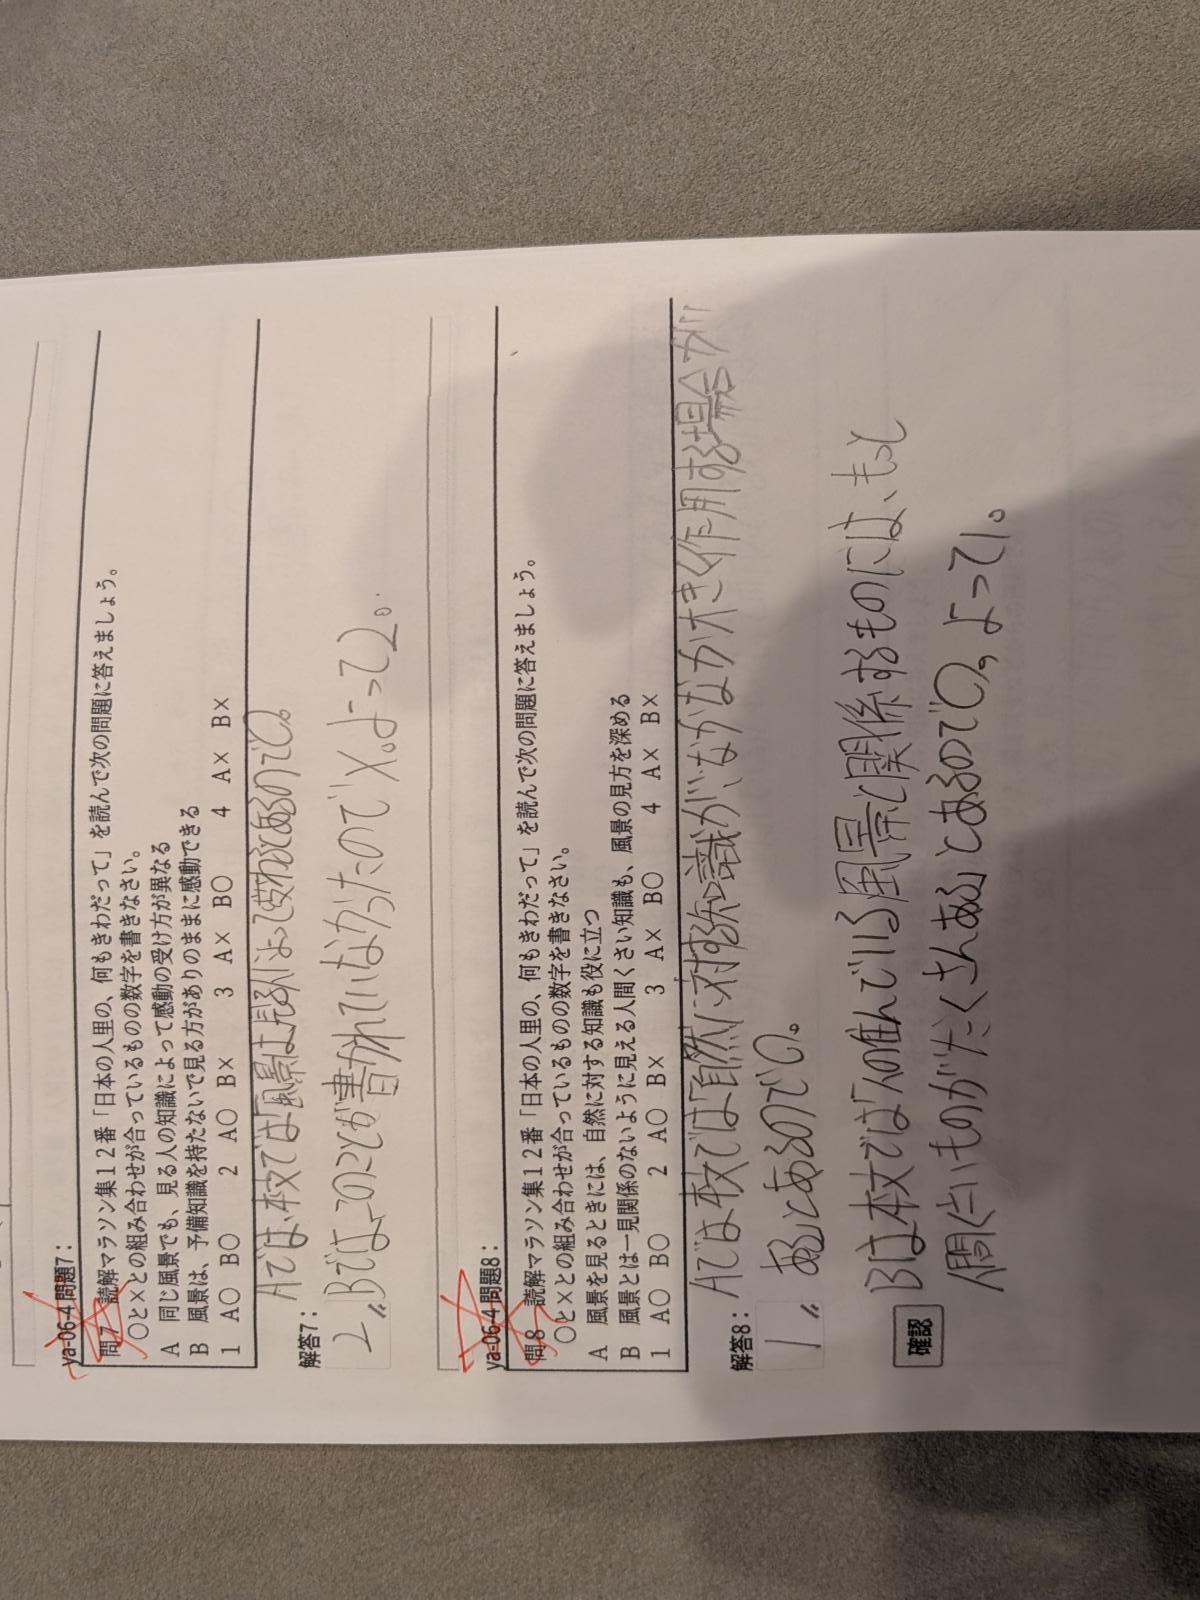 ya-06-4 問題7：
問7　読解マラソン集12番「日本の人里の、何もきわだって」を読んで次の問題に答えましょう。
○と×との組み合わせが合っているものの数字を書きなさい。
A　同じ風景でも、見る人の知識によって感動の受け方が異なる
B　風景は、予備知識を持たないで見る方がありのままに感動できる
1　A○　B○　　2　A○　B×　　3　A×　B○　　4　A×　B×
解答7：
Aでは、本文では「風景は見る人によって変わるとあるので○。
2,, Bでは、このことが書かれていなかったので×。よって2。
ya-06-4 問題8：
問8　読解マラソン集12番「日本の人里の、何もきわだって」を読んで次の問題に答えましょう。
○と×との組み合わせが合っているものの数字を書きなさい。
A　風景を見るときには、自然に対する知識も役に立つ
B　風景とは一見関係のないように見える人間くさい知識も、風景の見方を深める
1　A○　B○　　2　A○　B×　　3　A×　B○　　4　A×　B×
解答8：
Aでは本文では「自然に対する知識が、なかなか大きく作用する場合が
1,, あるとあるので○。
Bは本文では「人の住んでいる風景に関係するものには、もっと
確認
人間くさいものがたくさんある」とあるので○。よって1。